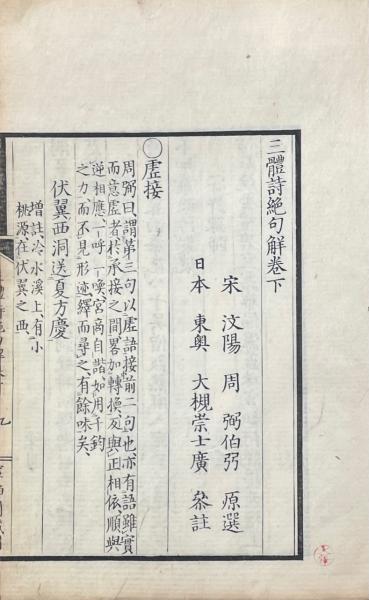 三體詩絶句解卷下
宋 汶陽 周 弼伯弜 原選
日本 東奥 大槻崇士廣 叅註
○虛接
周弼曰謂第三句以虛語接前二句也亦有語雖實
而意虛者於承接之間畧加轉換反與正相依順與
逆相應一呼一喚宮商自諧如用千鈞
之力而不見形迹繹而尋之有餘味矣
伏翼西洞送夏方慶
增註冷水溪上有小
桃源在伏翼之西